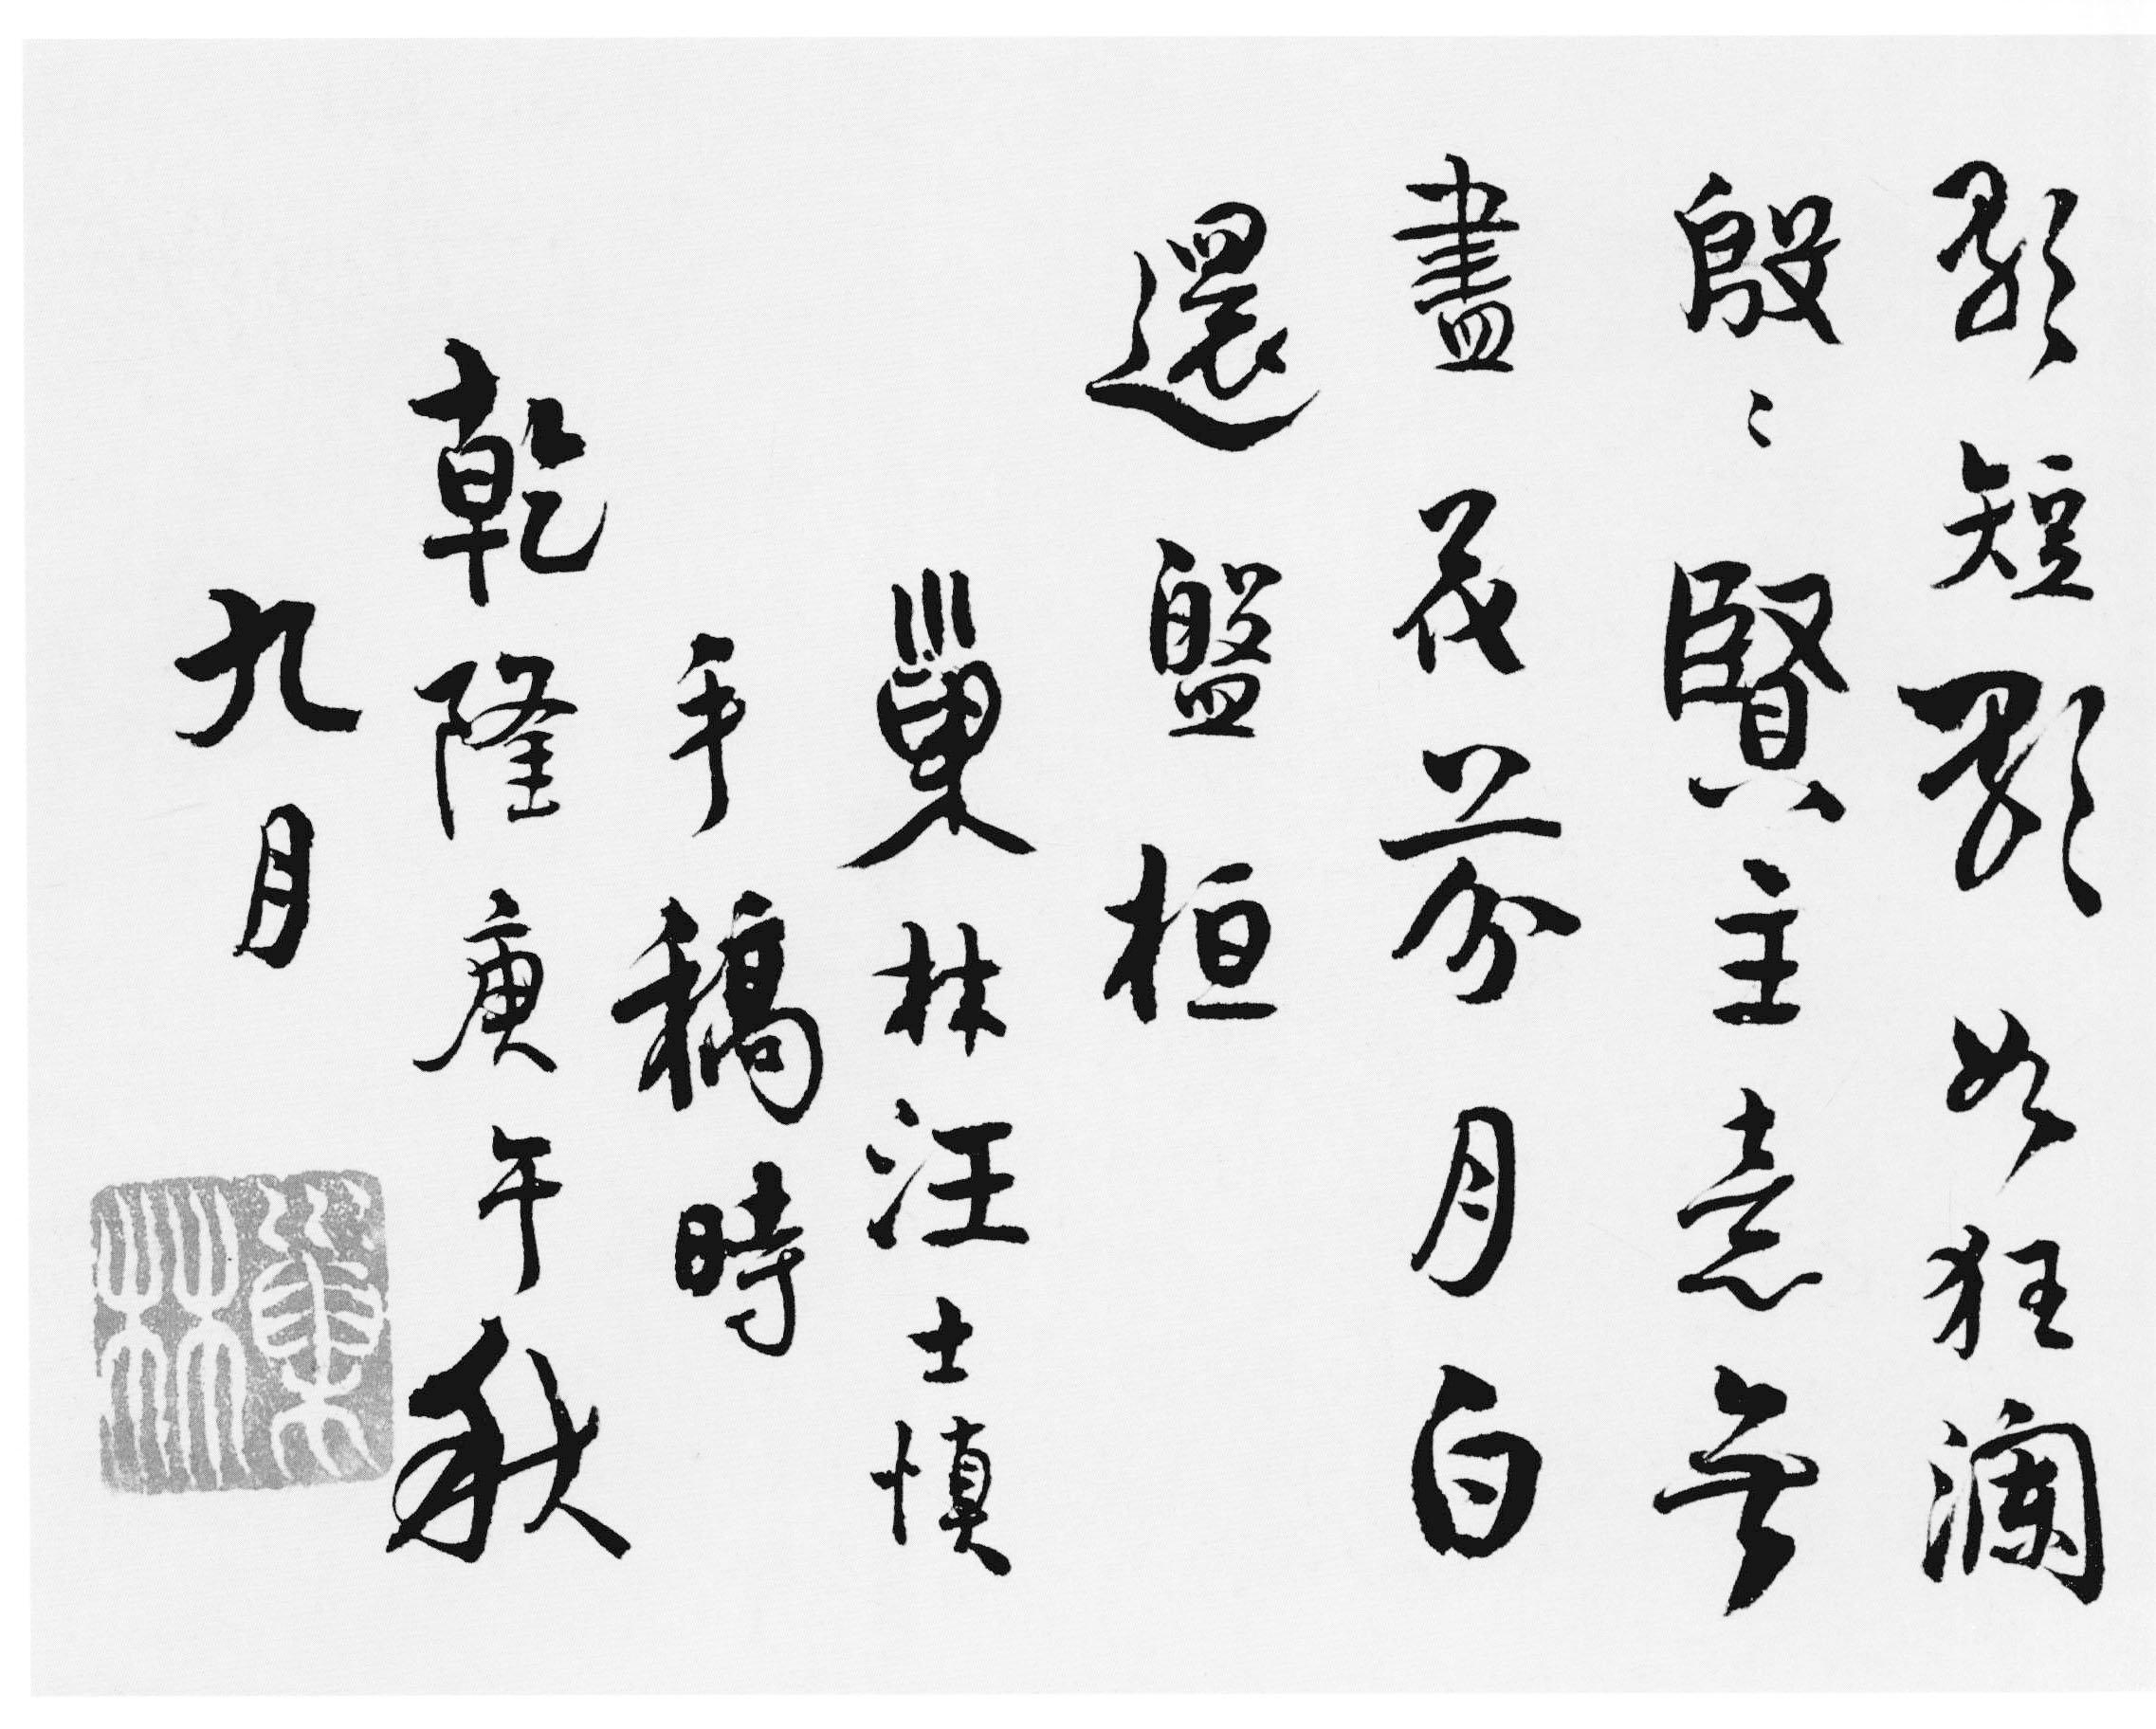 歌短歌如狂瀾
殷〻賢主意無
盡茂芬月白
還盤桓
巢林汪士慎
手稿時
乾隆庚午秋
九月
巢林